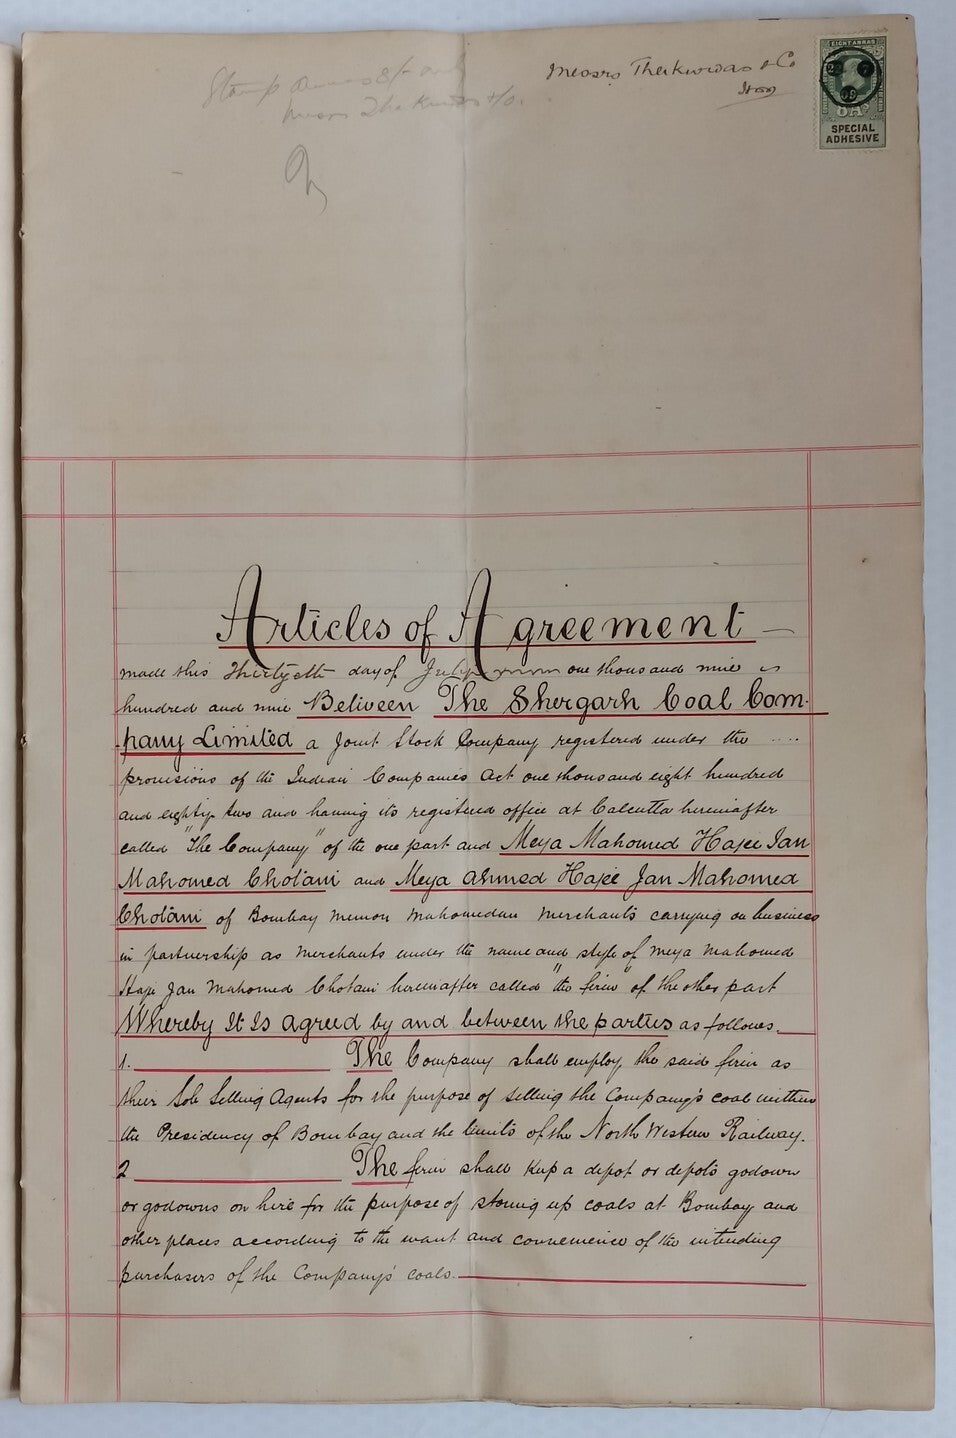 Stamp annas 8/- only
Messrs Thakurdas & Co.
Messrs Thakurdas & Co
EIGHT ANNAS
22 7
09
8As
SPECIAL
ADHESIVE
Articles of Agreement
made this Thirtyeth day of July one thousand nine
hundred and nine Between The Shergarh Coal Com-
pany Limited a Joint Stock Company registered under the ....
provisions of the Indian Companies Act one thousand eight hundred
and eighty two and having its registered office at Calcutta hereinafter
called "The Company" of the one part and Meya Mahomed Hajee Jan
Mahomed Chotani and Meya Ahmed Hajee Jan Mahomed
Chotani of Bombay Memon Mahomedan Merchants carrying on business
in partnership as Merchants under the name and style of Meya Mahomed
Haji Jan Mahomed Chotani hereinafter called "the firm" of the other part
Whereby It Is agreed by and between the parties as follows.
1. The Company shall employ, the said firm as
their Sole Selling Agents for the purpose of selling the Company's coal within
the Presidency of Bombay and the limits of the North Western Railway.
2 The firm shall keep a depot or depots godown
or godowns on hire for the purpose of storing up coals at Bombay and
other places according to the want and convenience of the intending
purchasers of the Company's coals.